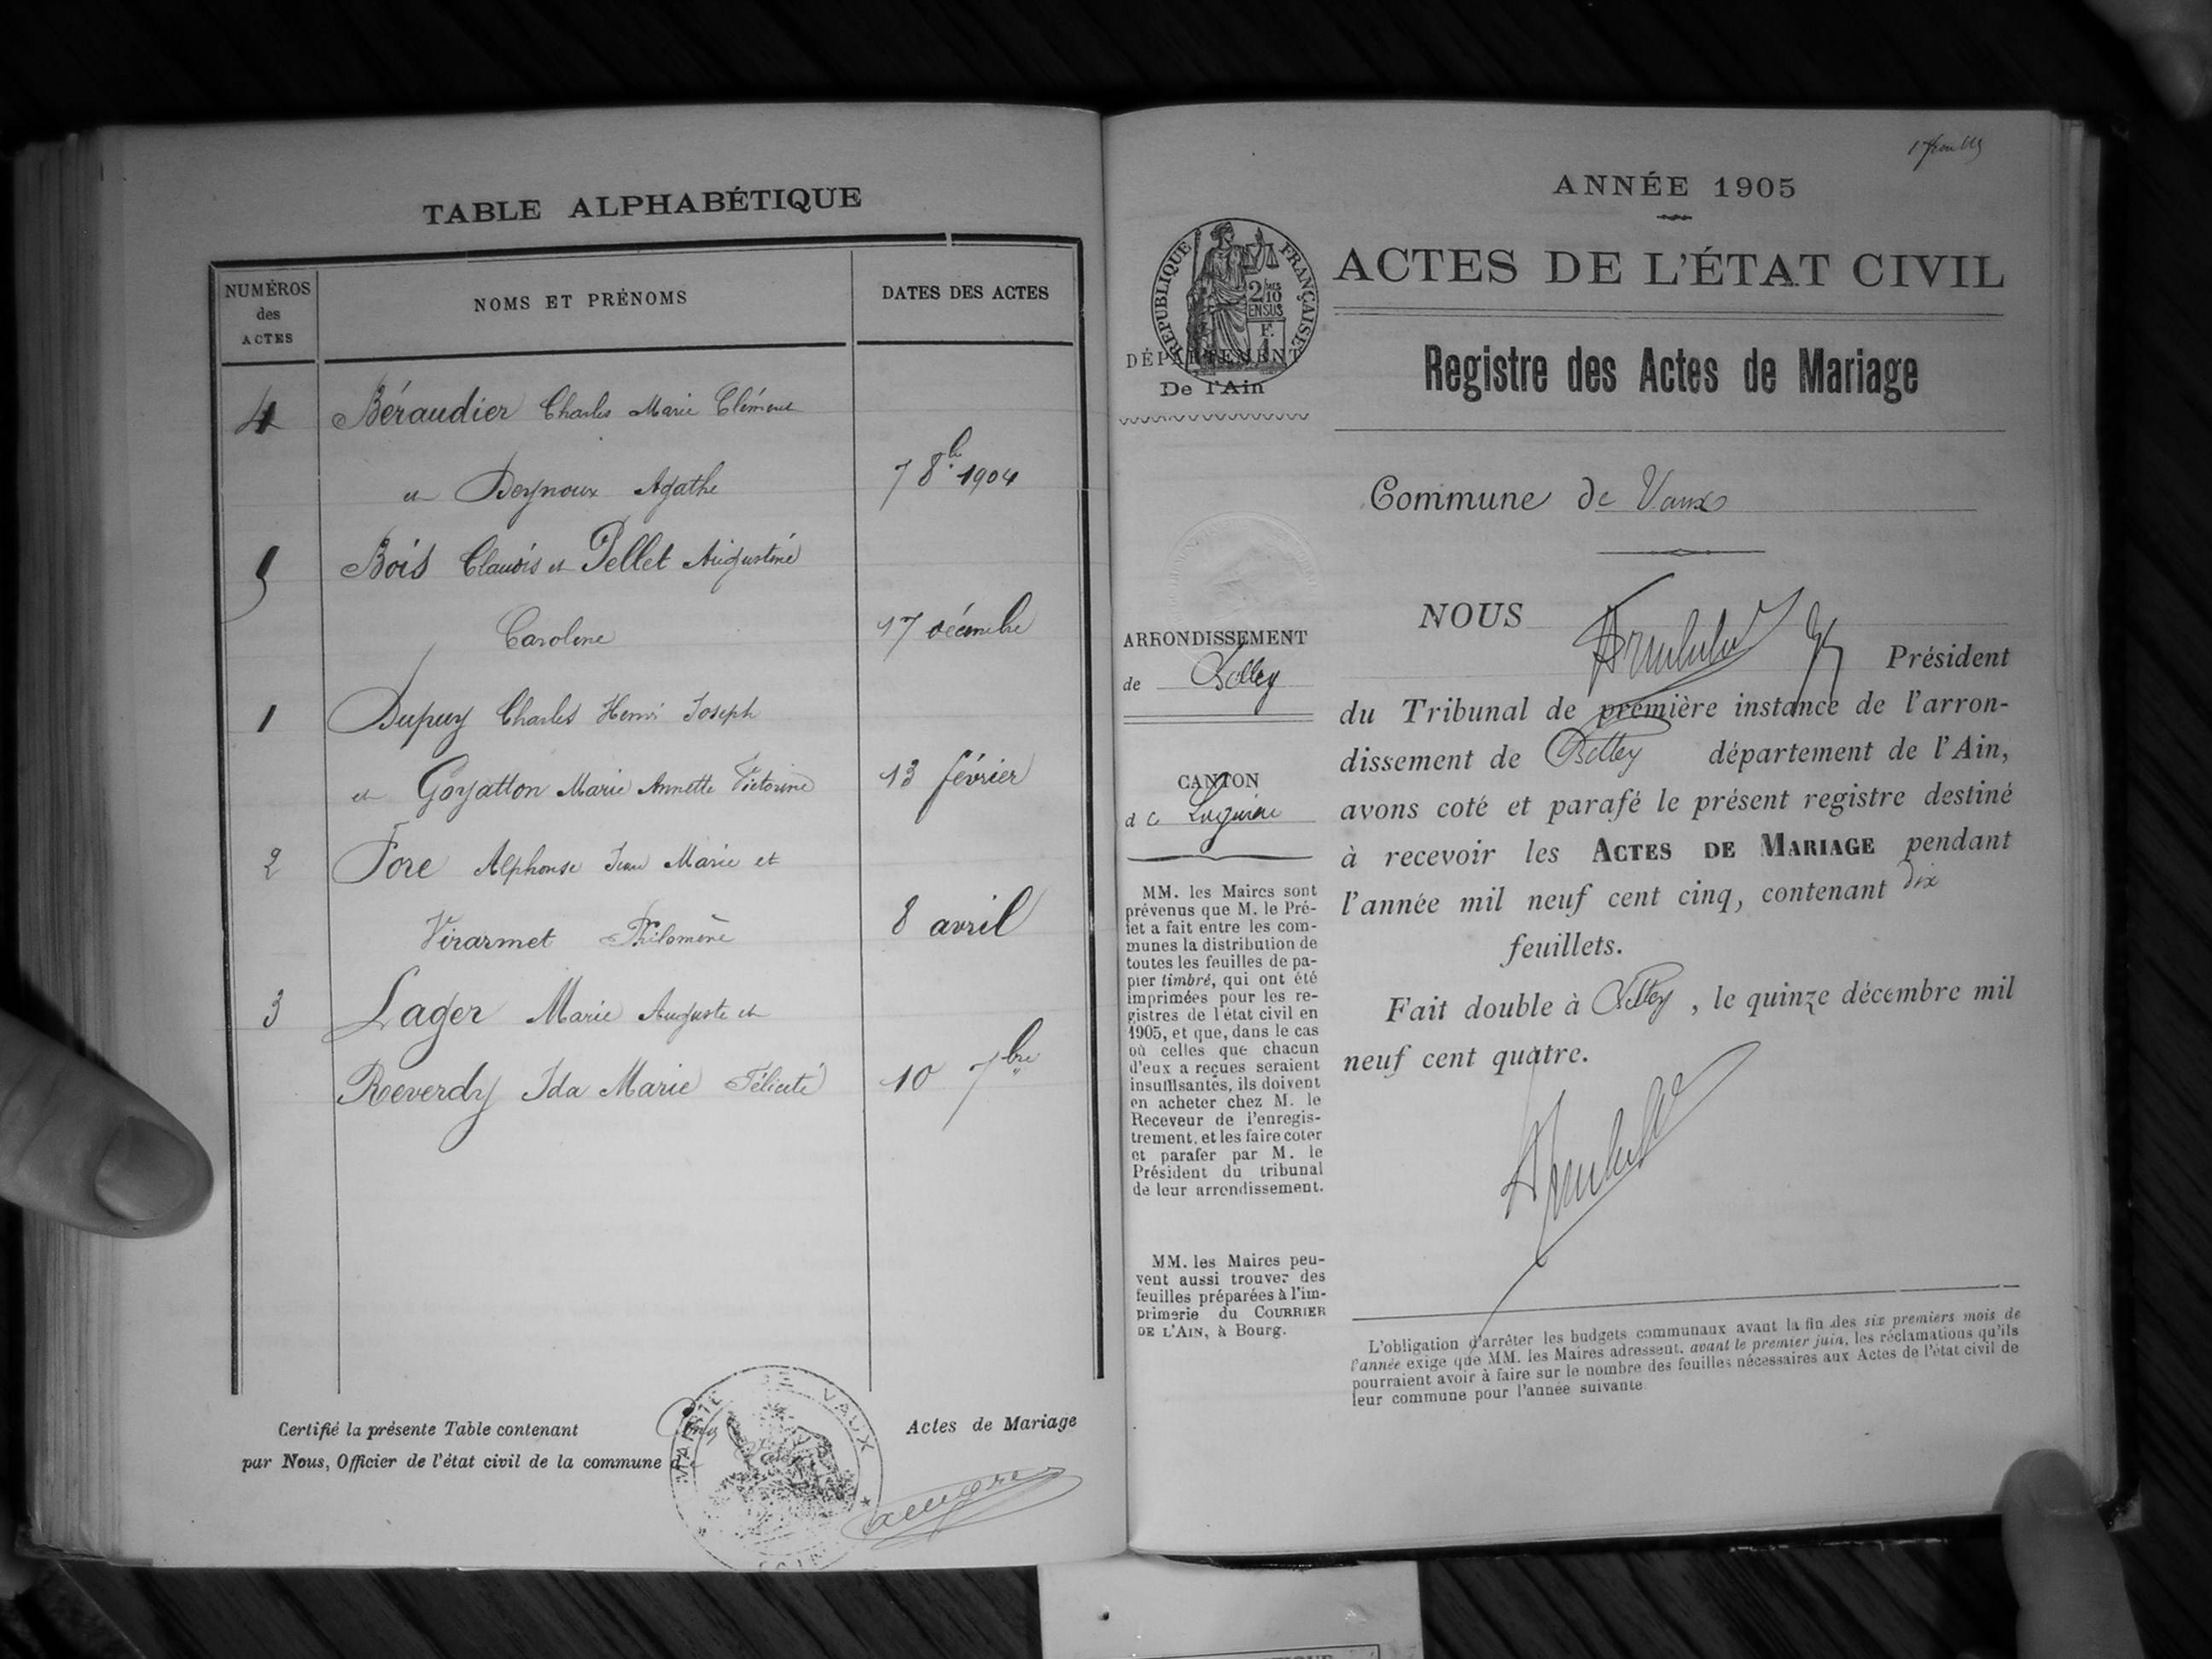 TABLE ALPHABÉTIQUE
NUMÉROS
des
ACTES
NOMS ET PRÉNOMS
DATES DES ACTES
4 Béraudier Charles Marie Clément
et Deynoux Agathe 7 8bre 1904
5 Bois Claudis et Pellet Augustine
Caroline 17 décembre
1 Dupuy Charles Henri Joseph
et Goyatton Marie Annette Victorine 13 février
2 Fore Alphonse Jean Marie et
Virarmet Philomène 8 avril
3 Lager Marie Auguste et
Reverdy Ida Marie Félicité 10 7bre
Certifié la présente Table contenant Cinq Actes de Mariage
par Nous, Officier de l'état civil de la commune de
MAIRIE DE VAUX
1er feuillet
ANNÉE 1905
RÉPUBLIQUE FRANÇAISE
2/10
EN SUS
F.
1
ACTES DE L'ÉTAT CIVIL
DÉPARTEMENT
De l'Ain
Registre des Actes de Mariage
Commune de Vaux
ARRONDISSEMENT
de Belley
CANTON
de Lagnieu
MM. les Maires sont
prévenus que M. le Pré-
fet a fait entre les com-
munes la distribution de
toutes les feuilles de pa-
pier timbré, qui ont été
imprimées pour les re-
gistres de l'état civil en
1905, et que, dans le cas
où celles que chacun
d'eux a reçues seraient
insuffisantes, ils doivent
en acheter chez M. le
Receveur de l'enregis-
trement, et les faire coter
et parafer par M. le
Président du tribunal
de leur arrondissement.
MM. les Maires peu-
vent aussi trouver des
feuilles préparées à l'im-
primerie du COURRIER
DE L'AIN, à Bourg.
NOUS
Président
du Tribunal de première instance de l'arron-
dissement de Belley département de l'Ain,
avons coté et parafé le présent registre destiné
à recevoir les ACTES DE MARIAGE pendant
l'année mil neuf cent cinq, contenant dix
feuillets.
Fait double à Belley, le quinze décembre mil
neuf cent quatre.
L'obligation d'arrêter les budgets communaux avant la fin des six premiers mois de
l'année exige que MM. les Maires adressent, avant le premier juin, les réclamations qu'ils
pourraient avoir à faire sur le nombre des feuilles nécessaires aux Actes de l'état civil de
leur commune pour l'année suivante